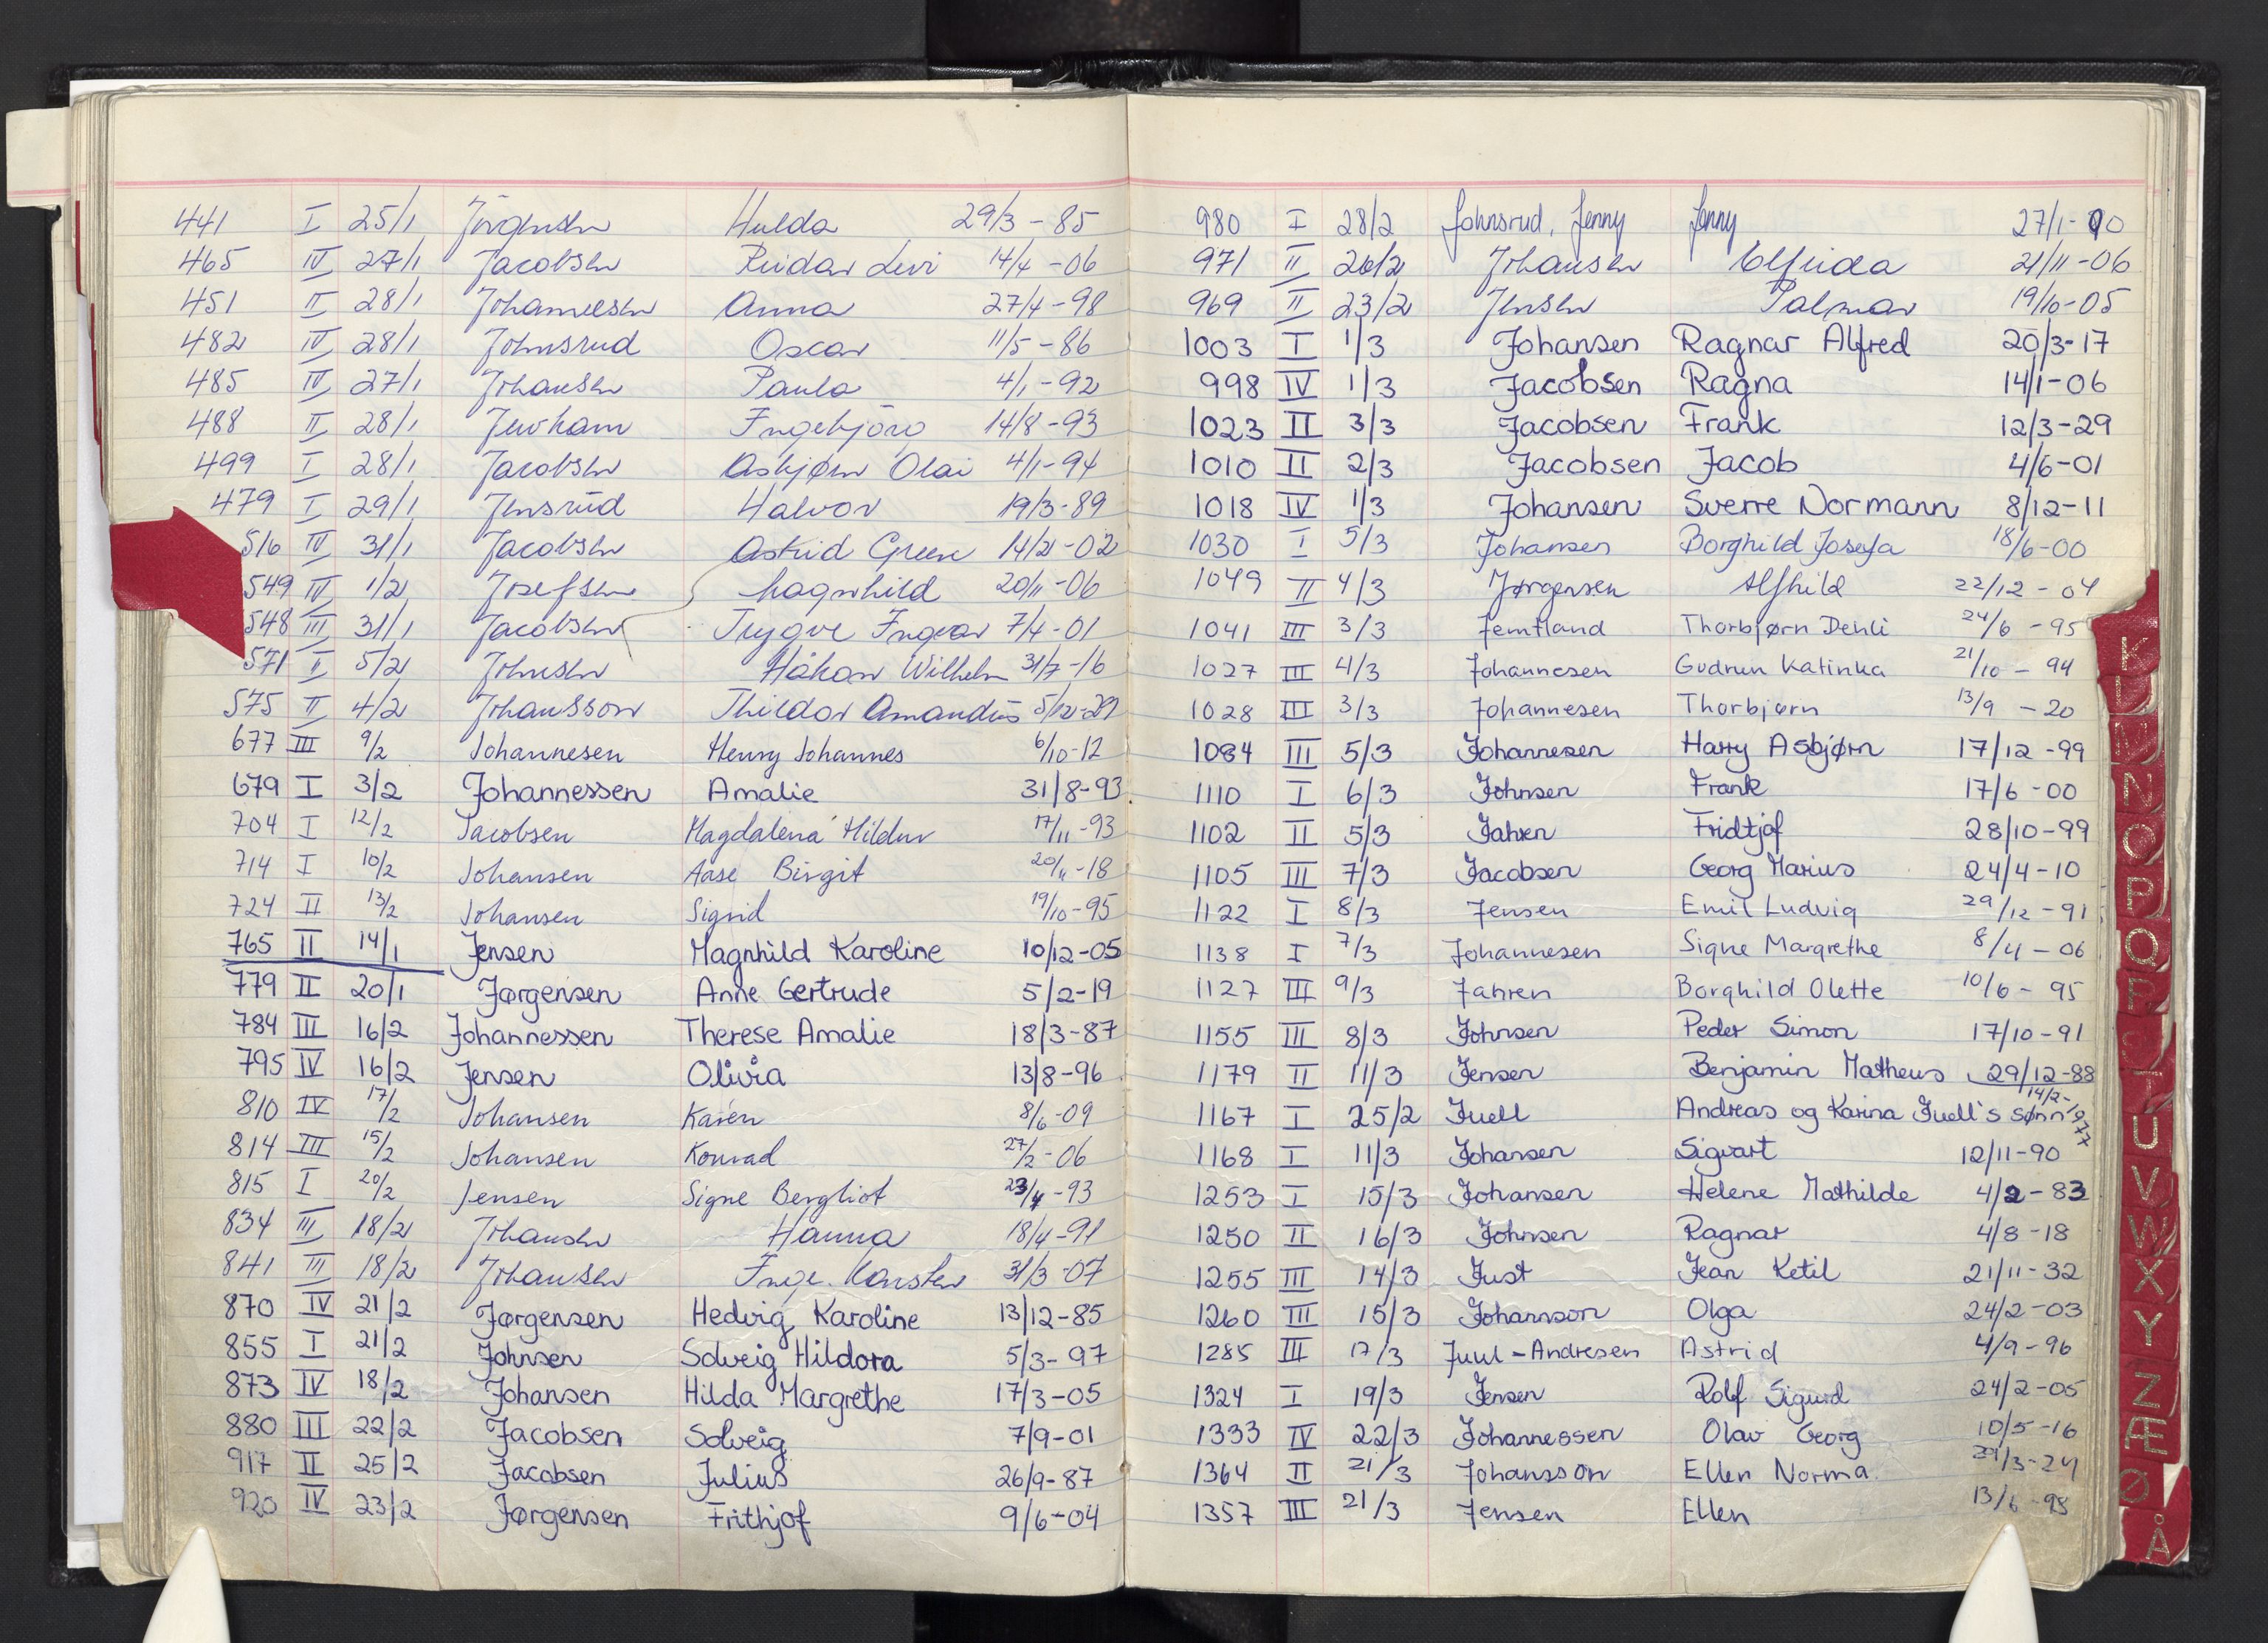 441 I 25/1 Jörgensen Hulda 29/3-85
465 IV 27/1 Jacobsen Reidar Levi 14/4-06
451 II 28/1 Johannessen Anna 27/4-98
482 IV 28/1 Johnsrud Oscar 11/5-86
485 IV 27/1 Johansen Paula 4/1-92
488 II 28/1 Ingebjörg 14/8-93
499 I 28/1 Jacobsen Asbjørn Olai 4/1-94
479 I 29/1 Jensrud Halvor 19/3-89
516 IV 31/1 Jacobsen Astrid Green 14/2-02
549 IV 1/2 Josefsen Magnhild 20/11-06
548 III 31/1 Jacobsen Trygve Ingvar 7/4-01
571 I 5/2 Johnsen Håkon Wilhelm 31/7-16
575 II 4/2 Johansson Thildor Amandus
677 III 9/2 Johannesen Henry Johannes 6/10-12
679 I 3/2 Johannessen Amalie 31/8-93
704 I 12/2 Jacobsen Magdalena Hildur 17/11-93
714 I 10/2 Johansen Aase Birgit 20/11-18
724 II 13/2 Johansen Sigrid 19/10-95
765 II 14/1 Jensen Magnhild Karoline 10/12-05
779 II 20/1 Jørgensen Anne Gertrude 5/2-19
784 III 16/2 Johannessen Therese Amalie 18/3-87
795 IV 16/2 Jensen Olivia 13/8-96
810 IV 17/2 Johansen Karen 8/6-09
814 III 15/2 Johansen Konrad 27/2-06
815 I 20/2 Jensen Signe Bergliot 23/4-93
834 III 18/2 Johansen Hanna 18/4-91
841 III 18/2 Johansen Inge Karsten 31/3-07
870 IV 21/2 Jørgensen Hedvig Karoline 13/12-85
855 I 21/2 Johnsen Solveig Hildora 5/3-97
873 IV 18/2 Johansen Hilda Margrethe 17/3-05
880 III 22/2 Jacobsen Solveig 7/9-01
917 II 25/2 Jacobsen Julius 26/9-87
920 IV 23/2 Jørgensen Frithjof 9/6-04
980 I 28/2 Johnsrud, Jenny Jenny 27/1-00
971 II 26/2 Johansen Elfrida 21/11-06
969 II 23/2 Jensen Palmar 19/10-05
1003 I 1/3 Johansen Ragnar Alfred 20/3-17
998 IV 1/3 Jacobsen Ragna 14/1-06
1023 II 3/3 Jacobsen Frank 12/3-29
1010 II 2/3 Jacobsen Jacob 4/6-01
1018 IV 1/3 Johansen Sverre Normann 8/12-11
1030 I 5/3 Johansen Borghild Josefa 18/6-00
1049 II 4/3 Jørgensen Alfhild 22/12-04
1041 III 3/3 Jemtland Thorbjørn Dehli 24/6-95
1027 III 4/3 Johannesen Gudrun Katinka 21/10-94
1028 III 3/3 Johannesen Thorbjørn 13/9-20
1084 III 5/3 Johannesen Harry Asbjørn 17/12-99
1110 I 6/3 Johnsen Frank 17/6-00
1102 II 5/3 Jahren Fridtjof 28/10-99
1105 III 7/3 Jacobsen Georg Marius 24/4-10
1122 I 8/3 Jensen Emil Ludvig 29/12-91
1138 I 7/3 Johannesen Signe Margrethe 8/4-06
1127 III 9/3 Jahren Borghild Olette 10/6-95
1155 III 8/3 Johnsen Peder Simon 17/10-91
1179 II 11/3 Jensen Benjamin Matheus 29/12-88
1167 I 25/2 Juell Andreas og Karina Juell's sønn 14/2-1977
1168 I 11/3 Johansen Sigvart 12/11-90
1253 I 15/3 Johansen Helene Mathilde 4/2-83
1250 II 16/3 Johnsen Ragnar 4/8-18
1255 III 14/3 Just Jean Ketil 21/11-32
1260 III 15/3 Johannson Olga 24/2-03
1285 III 17/3 Juul-Andresen Astrid 4/9-96
1324 I 19/3 Jensen Rolf Sigurd 24/2-05
1333 IV 22/3 Johannessen Olav Georg 10/5-16
1364 II 21/3 Johansson Ellen Norma 29/3-24
1357 III 21/3 Jensen Ellen 13/6-98
K
L
M
N
O
P
Q
R
S
T
U
V
W
X
Y
Z
Æ
Ø
Å